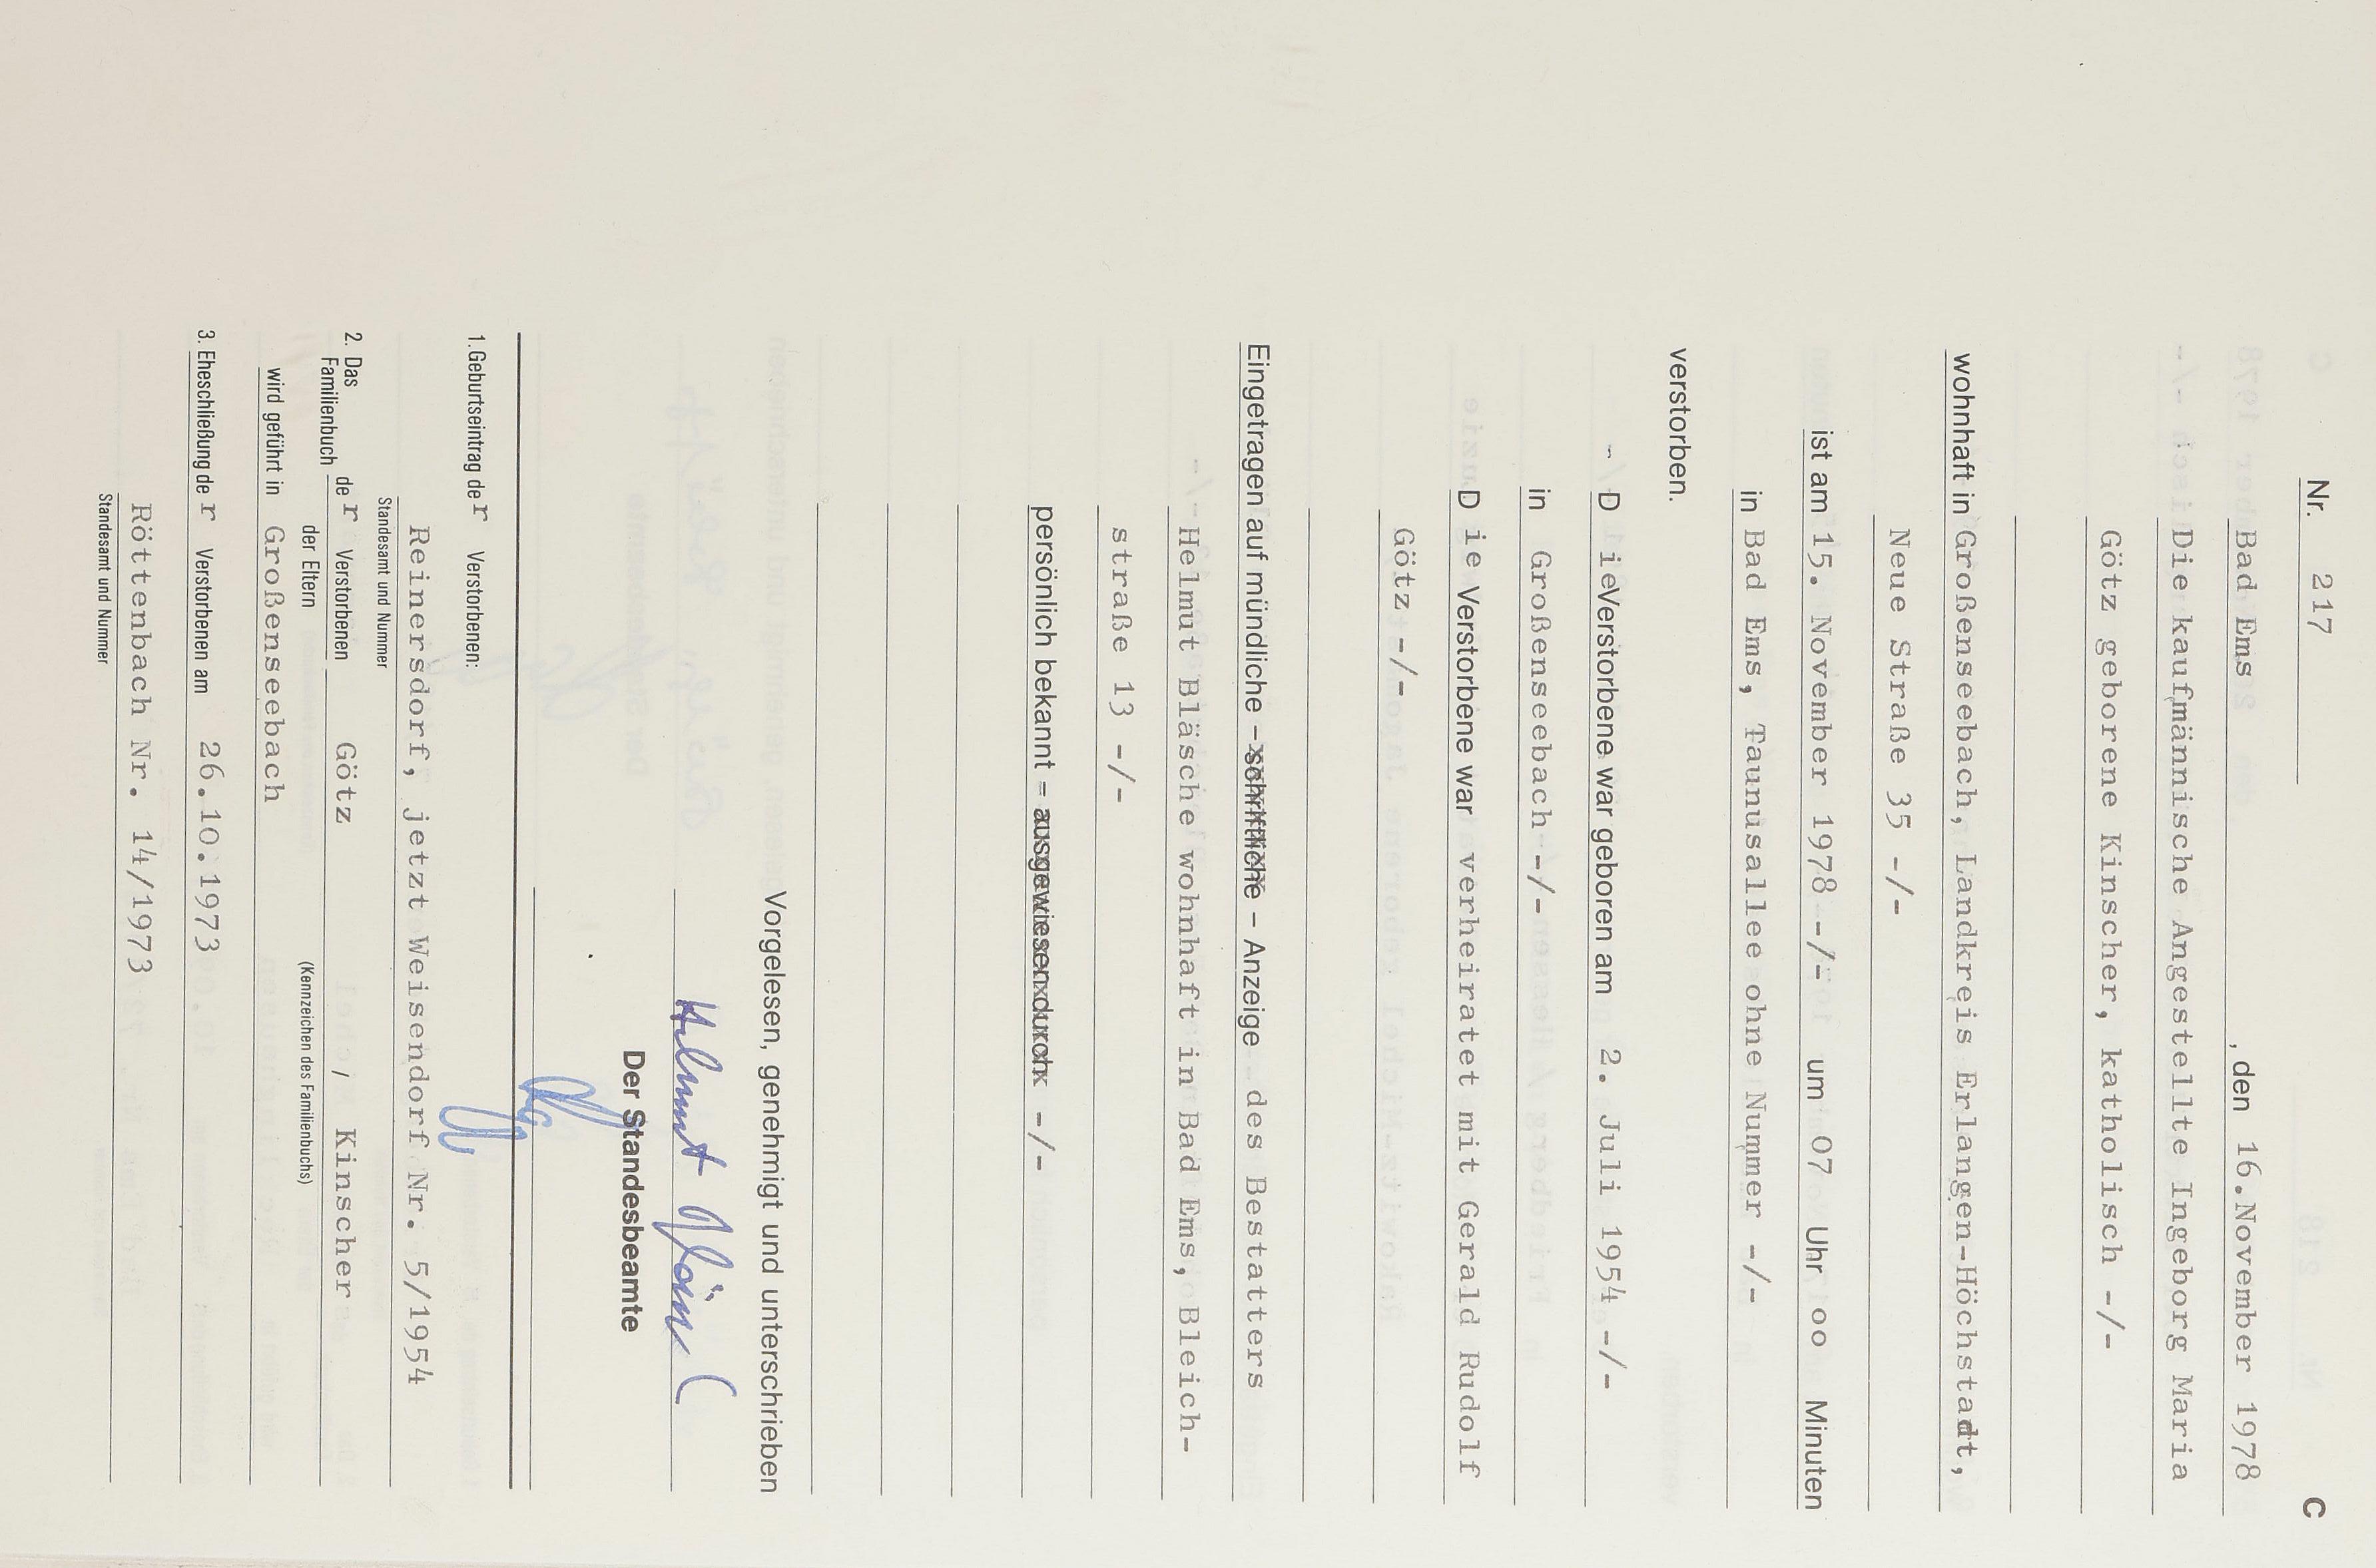 Nr. 217 C
Bad Ems , den 16.November 1978
Die kaufmännische Angestellte Ingeborg Maria
Götz geborene Kinscher, katholisch -/-
wohnhaft in Großenseebach, Landkreis Erlangen-Höchstadt,
Neue Straße 35 -/-
ist am 15. November 1978 -/- um 07 Uhr oo Minuten
in Bad Ems, Taunusallee ohne Nummer -/-
verstorben.
D ieVerstorbene war geboren am 2. Juli 1954 -/-
in Großenseebach -/-
D ie Verstorbene war verheiratet mit Gerald Rudolf
Götz -/-
Eingetragen auf mündliche – schriftliche – Anzeige des Bestatters
Helmut Bläsche wohnhaft in Bad Ems, Bleich-
straße 13 -/-
persönlich bekannt = ausgewiesen durch -/-
Vorgelesen, genehmigt und unterschrieben
Helmut
Der Standesbeamte
1.Geburtseintrag de r Verstorbenen:
Reinersdorf, jetzt Weisendorf Nr. 5/1954
Standesamt und Nummer
2. Das Familienbuch de r Verstorbenen Götz / Kinscher
der Eltern (Kennzeichen des Familienbuchs)
wird geführt in Großenseebach
3. Eheschließung de r Verstorbenen am 26.10.1973
Röttenbach Nr. 14/1973
Standesamt und Nummer